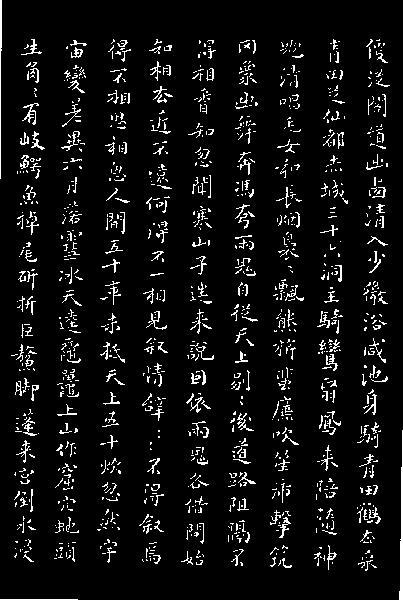 便從閣道出西清入少微浴咸池身騎青田鶴去采
青田芝仙都赤城三十六洞主騎鸞翳鳳來陪隨神
魖清唱毛女和長烟裊〻飄熊旂蜚廉吹笙虎擊筑
罔象出舞奔馮夷兩鬼自從天上別〻後道路阻隔不
得相知忽聞寒山子往來說因依兩鬼各借問始
知相去近不遠何得不一相見叙情辞〻〻不得叙焉
得不相思相思人間五十年未抵天上五十炊忽然宇
宙變差異六月落雪冰天逵黿鼉上山作窟穴蛇頭
生角〻有岐鰐魚掉尾斫折巨鰲脚蓬萊宮倒水浸